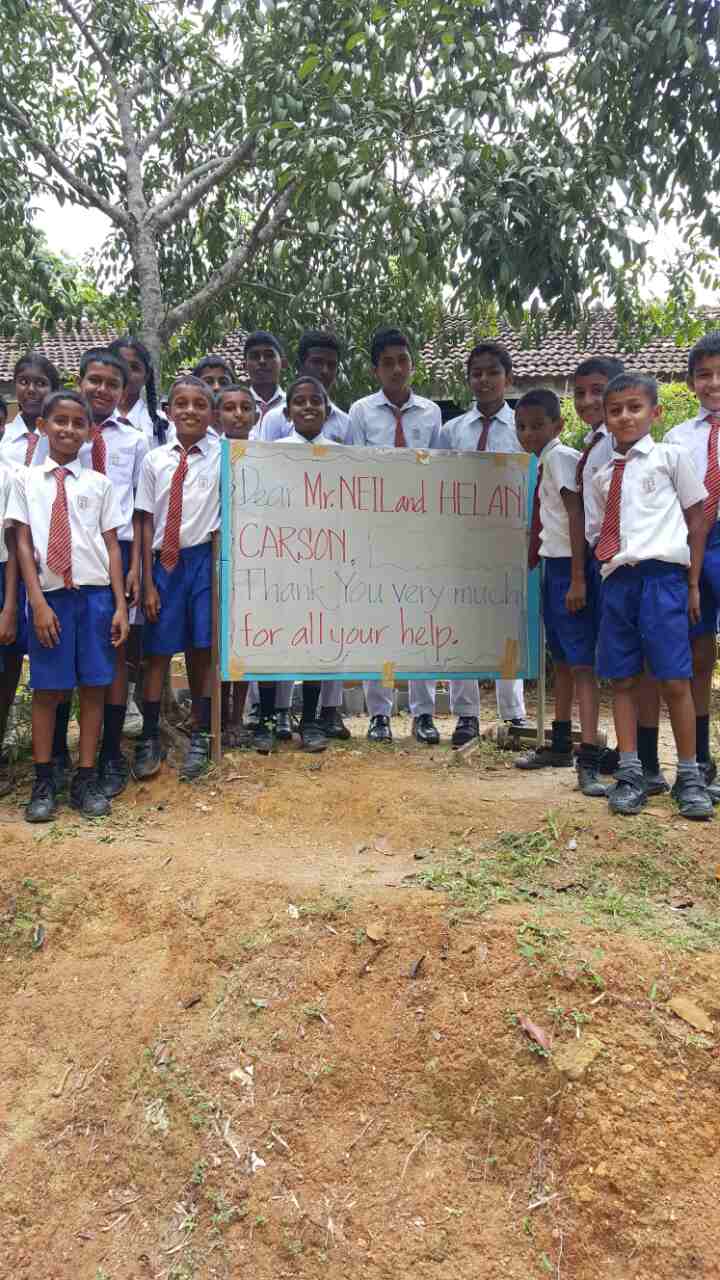 Dear Mr. NEIL and HELAN
CARSON,
Thank You very much
for all your help.